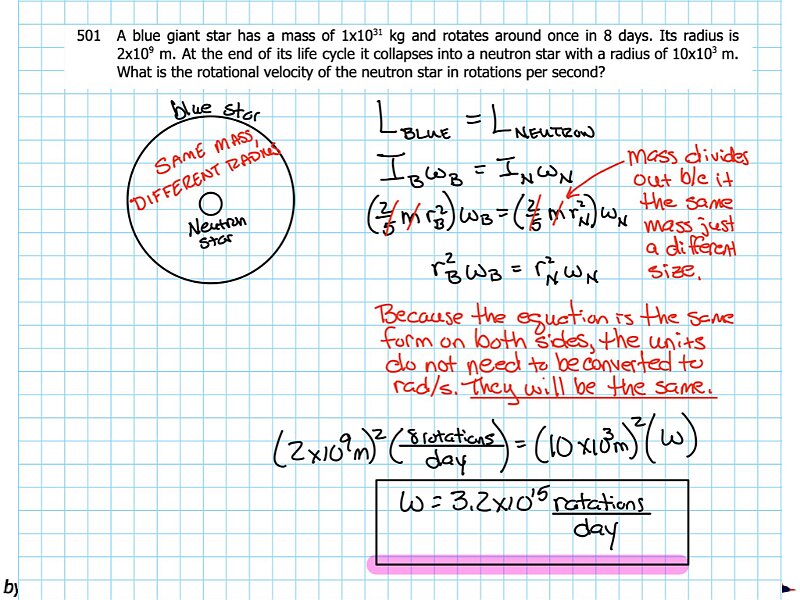 501 A blue giant star has a mass of 1x10³¹ kg and rotates around once in 8 days. Its radius is
2x10⁹ m. At the end of its life cycle it collapses into a neutron star with a radius of 10x10³ m.
What is the rotational velocity of the neutron star in rotations per second?
blue star
SAME MASS,
DIFFERENT RADIUS
Neutron
star
L BLUE = L NEUTRON
I_B ω_B = I_N ω_N
(2/5 m r_B²) ω_B = (2/5 m r_N²) ω_N
r_B² ω_B = r_N² ω_N
mass divides
out b/c it
the same
mass just
a different
size.
Because the equation is the same
form on both sides, the units
do not need to be converted to
rad/s. They will be the same.
(2x10⁹m)² (8 rotations/day) = (10x10³m)² (ω)
ω = 3.2x10¹⁵ rotations
day
by